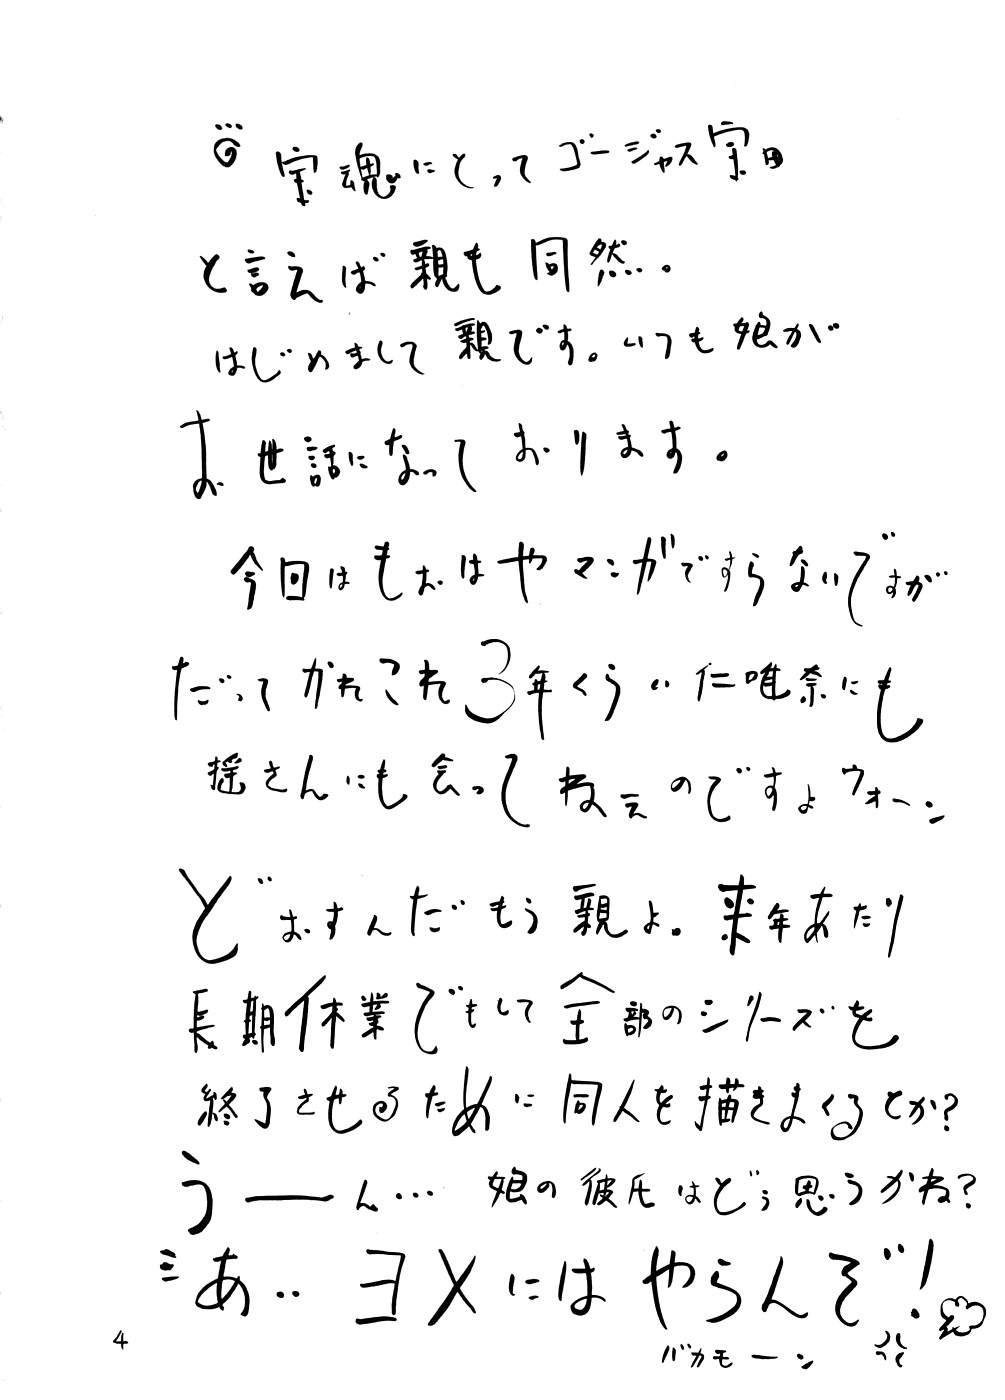 宝魂にとってゴージャス宝田
と言えば親も同然。
はじめまして親です。いつも娘が
お世話になっております。
今回はもおはやマンガですらないですが
だってかれこれ3年くらい仁唯奈にも
揺さんにも会ってねぇのですよウォーン
どおすんだもう親よ。来年あたり
長期休業でもして全部のシリーズを
終了させるために同人を描きまくるとか?
うーん… 娘の彼氏はどぅ思うかね?
あ‥ヨメにはやらんぞ!
バカモーン
4